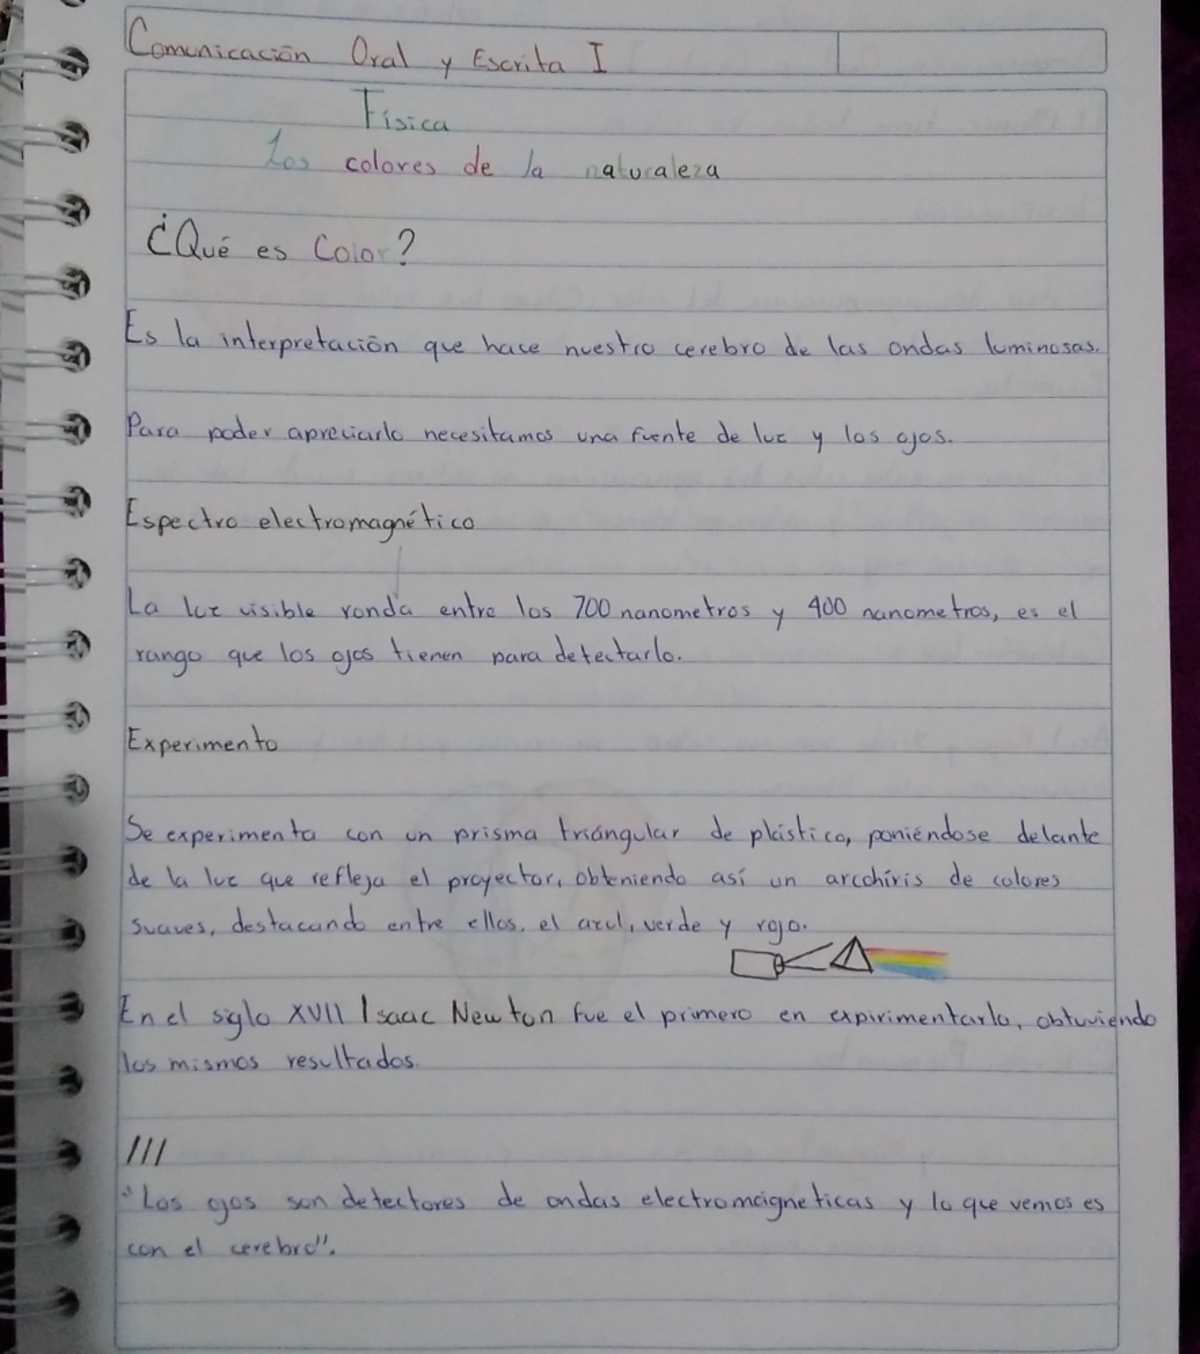 Comunicación Oral y Escrita I
Física
Los colores de la naturaleza
¿Qué es Color?
Es la interpretación que hace nuestro cerebro de las ondas luminosas.
Para poder apreciarlo necesitamos una fuente de luz y los ojos.
Espectro electromagnético
La luz visible ronda entre los 700 nanometros y 400 nanometros, es el
rango que los ojos tienen para detectarlo.
Experimento
Se experimenta con un prisma triángular de plástico, poniéndose delante
de la luz que refleja el proyector, obteniendo así un arcohiris de colores
suaves, destacando entre ellos, el azul, verde y rojo.
En el siglo XVII Isaac Newton fue el primero en expirimentarlo, obtuviendo
los mismos resultados.
///
"Los ojos son detectores de ondas electromágneticas y lo que vemos es
con el cerebro".